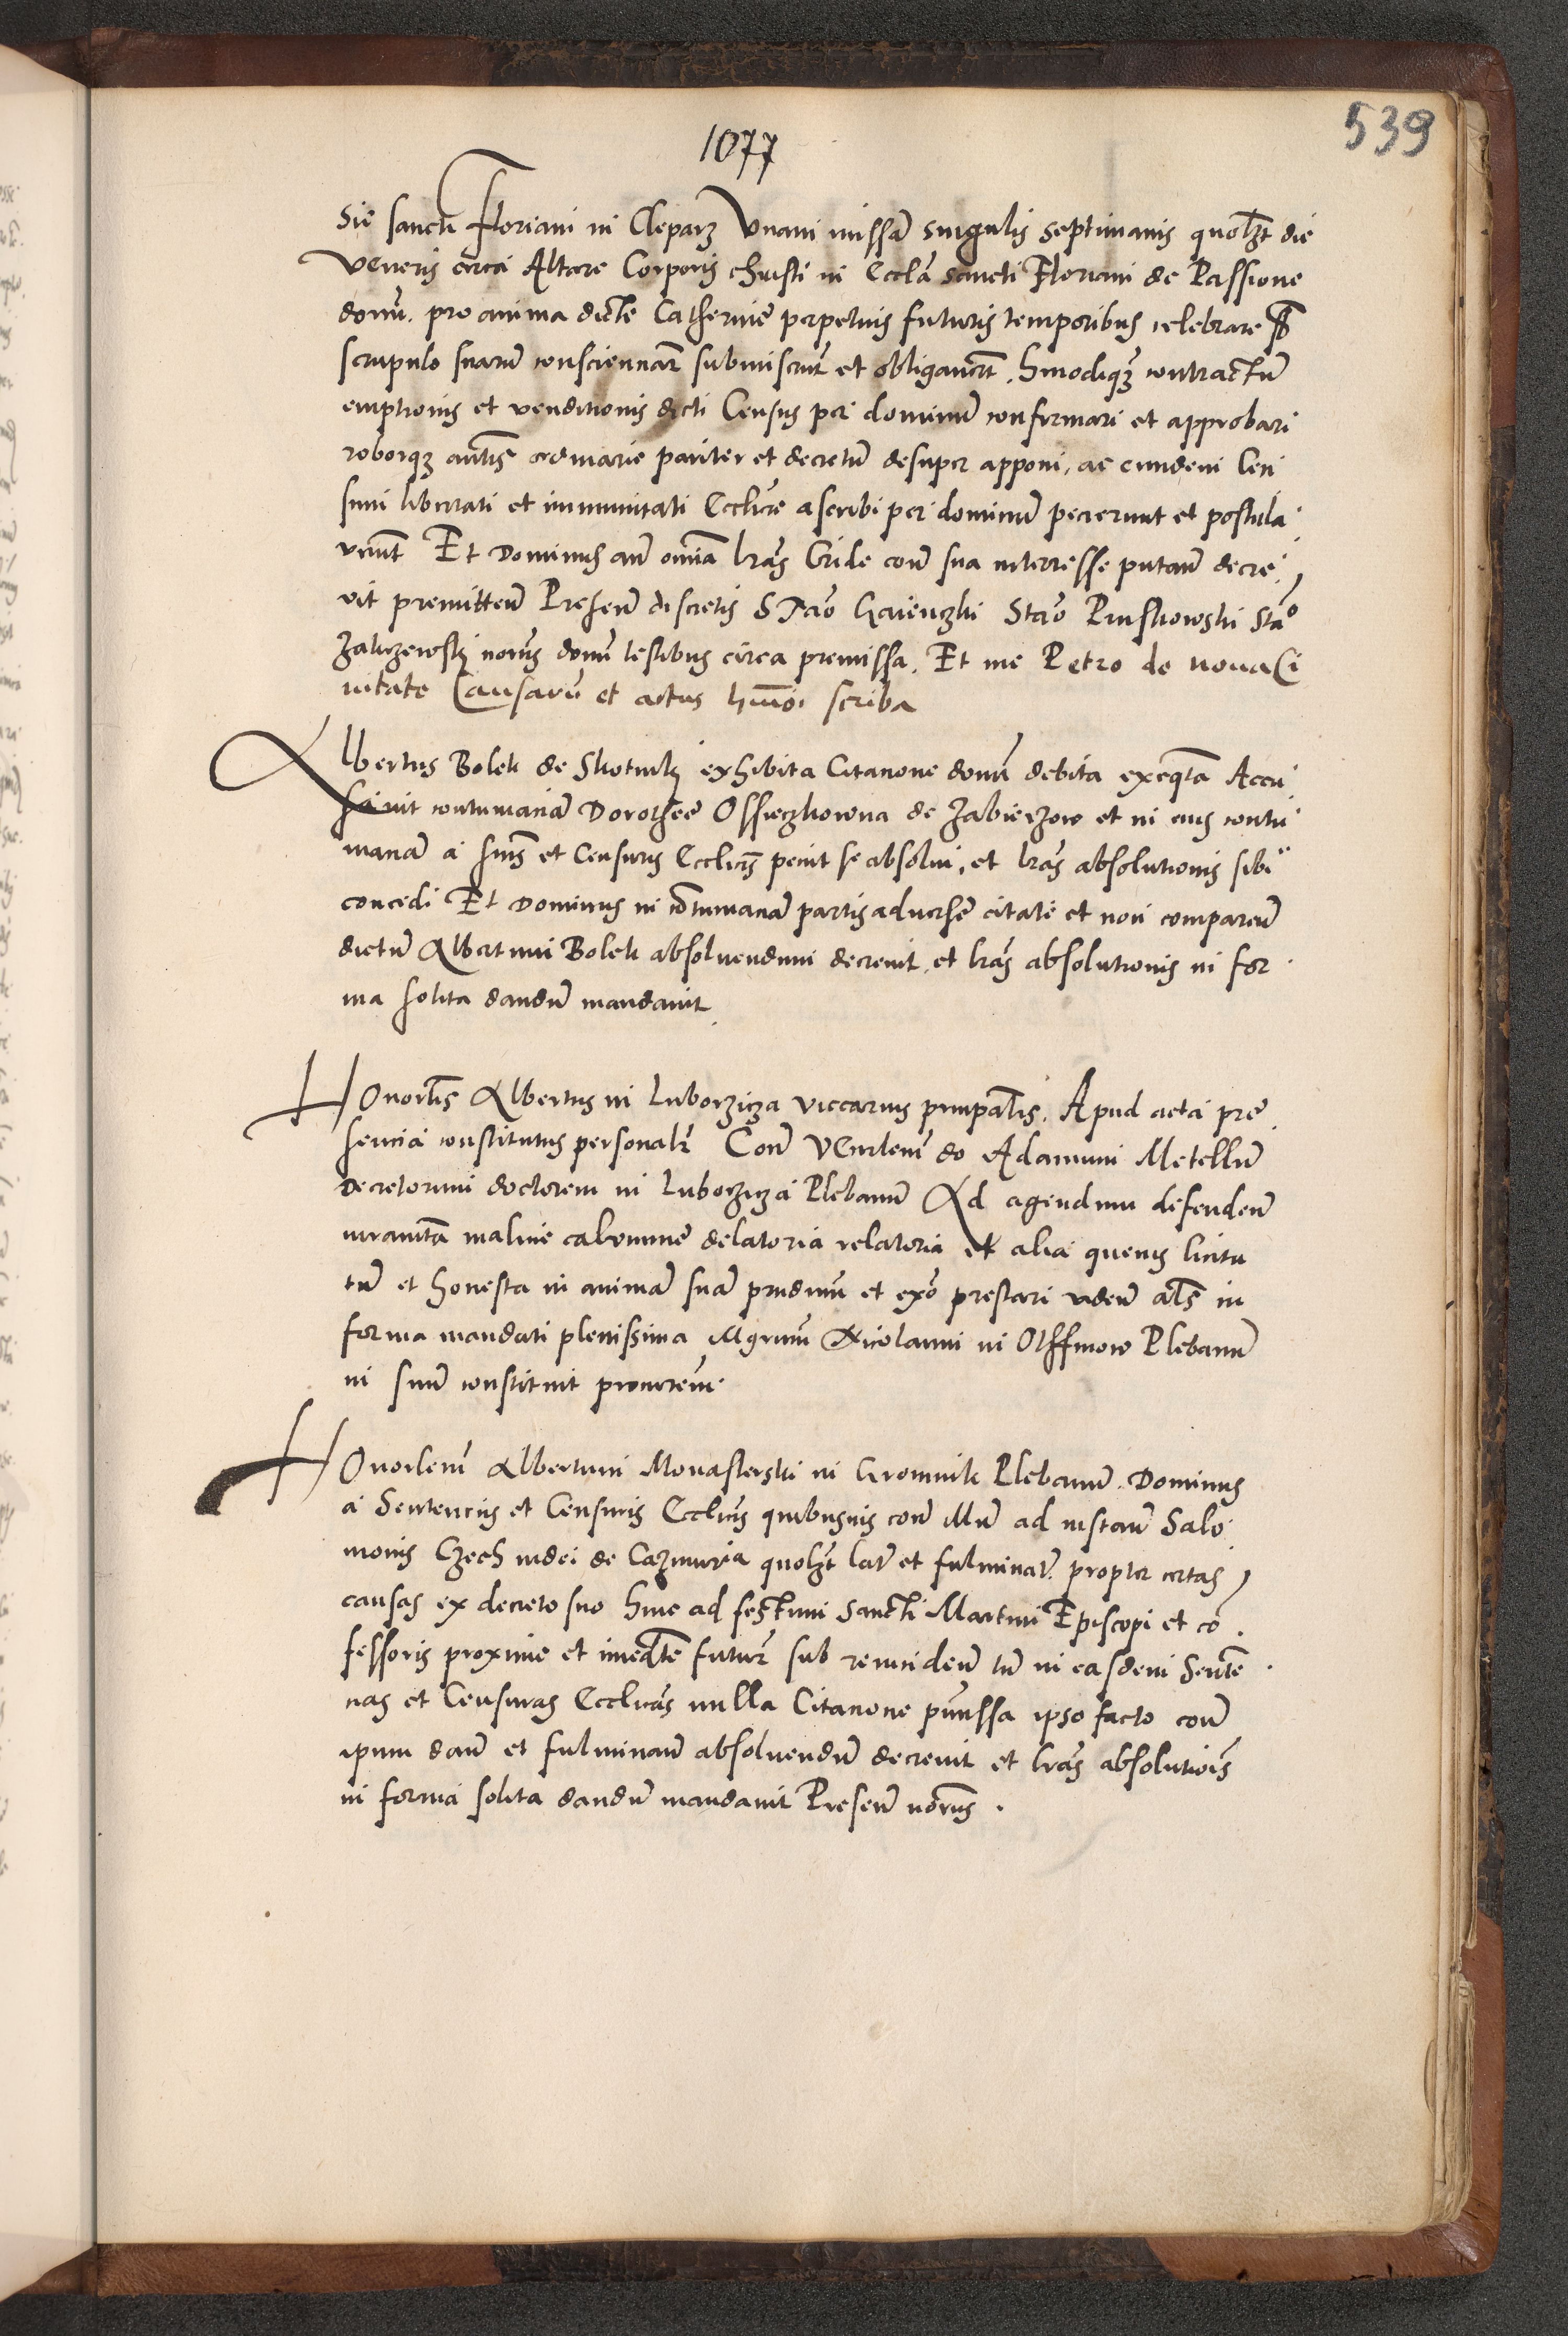 539
1077
sie sancti Floriani in Cleparz Vnam missam singulis septimanis quolibet die
Veneris circa Altare Corporis christi in Eccla sancti Floriani de Passione
domi. pro anima dicte Catherine perpetuis futuris temporibus celebrare sub
scrupulo suarum conscienciar submiserunt et obligaverunt. hmodique contractum
emptionis et venditionis dicti Census per dominum confirmari et approbari
roborque autis ordinarie pariter et decretum desuper apponi, ac eundem Cen
sum libertati et immunitati Ecclice ascribi per dominum pecierunt et postula
verunt Et Dominus omnia lras Cride con sua interresse putan decre
vit premitten Presen discretis Stao Gaienczki Stao Pruskowski Stao
Zaluzewsky noris domi testibus circa premissa. Et me Petro de nova Ci
uitate Causarum et actus hmoi scriba
Albertus Bolek de Skotniky exhibita Citacione domi debita execta Accu
savit contumaciam Dorothee Ossieczkowna de Zabierzow et in eius contu
maciam a sniis et Censuris Ecclicis peciit se absolvi, et lras absolutionis sibi
concedi Et Dominus in contumaciam partis adverse citate et non comparen
dictum Albertum Bolek absolvendum decrevit, et lras absolutionis in for
ma solita dandum mandavit
Honorlis Albertus in Luborzicza viccarius principalis. Apud acta pre
sencia constitutus personalr Con Venrlem do Adamum Metellum
Decretorum doctorem in Luborzicza Plebanum Ad agendum defenden
iuramta malicie calumnie delatoria relatoria et alia quevis licita
tum et honesta in animam suam prudnm et exo prestari viden als in
forma mandati plenissima Mgrum Nicolaum in Olssmow Plebanum
in suum constituit procurem
Honorlem Albertum Monasterski in Gromnik Plebanum. Dominus
a Sentenciis et Censuris Ecclicis quibusuis con illum ad instan Salo
monis Czech iudei de Cazimiria quolibet lat et fulminat. propter certas
causas ex decreto suo hinc ad festum Sancti Martini Episcopi et co
fessoris proxime et imediate futur sub reinciden tum in easdem Senten
cias et Censuras Ecclicas nulla Citacione premissa ipso facto con
ipsum dan et fulminan absolvendum decrevit et lras absolutiois
in forma solita dandum mandavit Presen noriis.